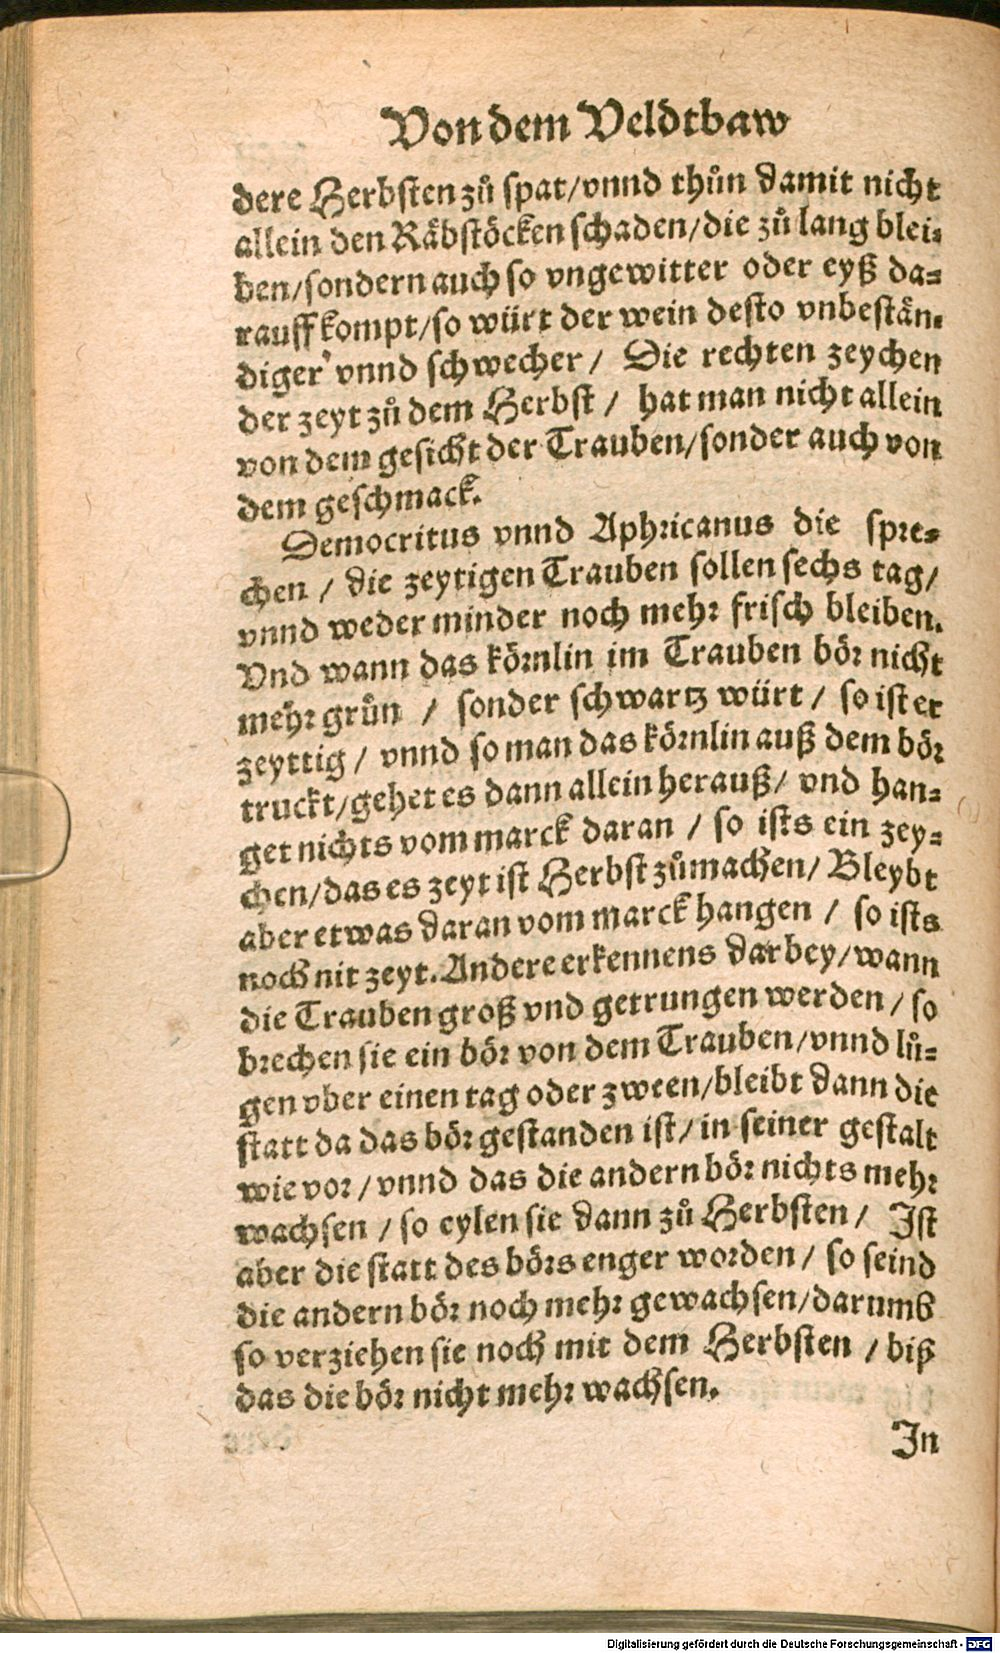 Von dem Veldtbaw
dere Herbsten zů spat/vnnd thůn damit nicht
allein den Räbstöcken schaden/die zů lang blei-
ben/sondern auch so vngewitter oder eyß da-
rauff kompt/so würt der wein desto vnbestän-
diger vnnd schwecher / Die rechten zeychen
der zeyt zů dem Herbst / hat man nicht allein
von dem gesicht der Trauben/sonder auch von
dem geschmack.
Democritus vnnd Aphricanus die spre-
chen / die zeytigen Trauben sollen sechs tag/
vnnd weder minder noch mehr frisch bleiben.
Vnd wann das körnlin im Trauben bör nicht
mehr grůn / sonder schwartz würt / so ist er
zeyttig / vnnd so man das körnlin auß dem bör
truckt/gehet es dann allein herauß/ vnd han-
get nichts vom marck daran / so ists ein zey-
chen/das es zeyt ist Herbst zůmachen/ Bleybt
aber etwas daran vom marck hangen / so ists
noch nit zeyt. Andere erkennens darbey/wann
die Trauben groß vnd getrungen werden / so
brechen sie ein bör von dem Trauben/vnnd lů-
gen vber einen tag oder zween/bleibt dann die
statt da das bör gestanden ist/in seiner gestalt
wie vor/vnnd das die andern bör nichts mehr
wachsen / so eylen sie dann zů Herbsten / Ist
aber die statt des börs enger worden / so seind
die andern bör noch mehr gewachsen/darumb
so verziehen sie noch mit dem Herbsten / biß
das die bör nicht mehr wachsen.
In
Digitalisierung gefördert durch die Deutsche Forschungsgemeinschaft - DFG